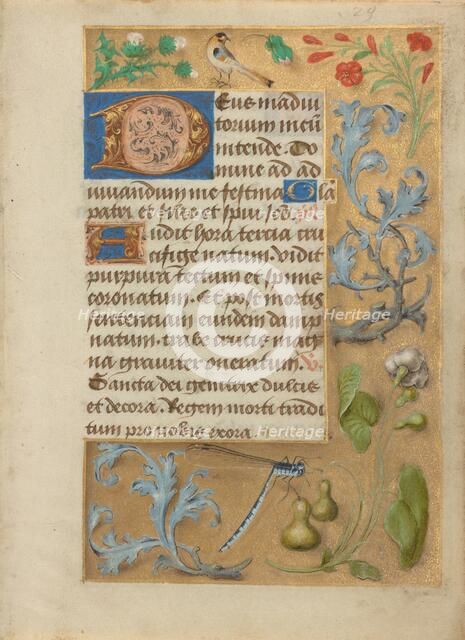 29
Deus in adiu
torium meũ
intende. Do
mine ad ad
iuvandum me festina Gla
patri et filio et spũi sc̃o.
Audit hora tercia cru
cifige natum. vidit
purpura tectum et spine
coronatum. Et post mortis
sentenciam eundem damp
natum. trabe crucis mag
na graviter oneratum. V
Sancta dei genitrix dulcis
et decora. Regem morti tradi
tum pro nobis exora.
Heritage Heritage Heritage
Heritage Heritage Heritage